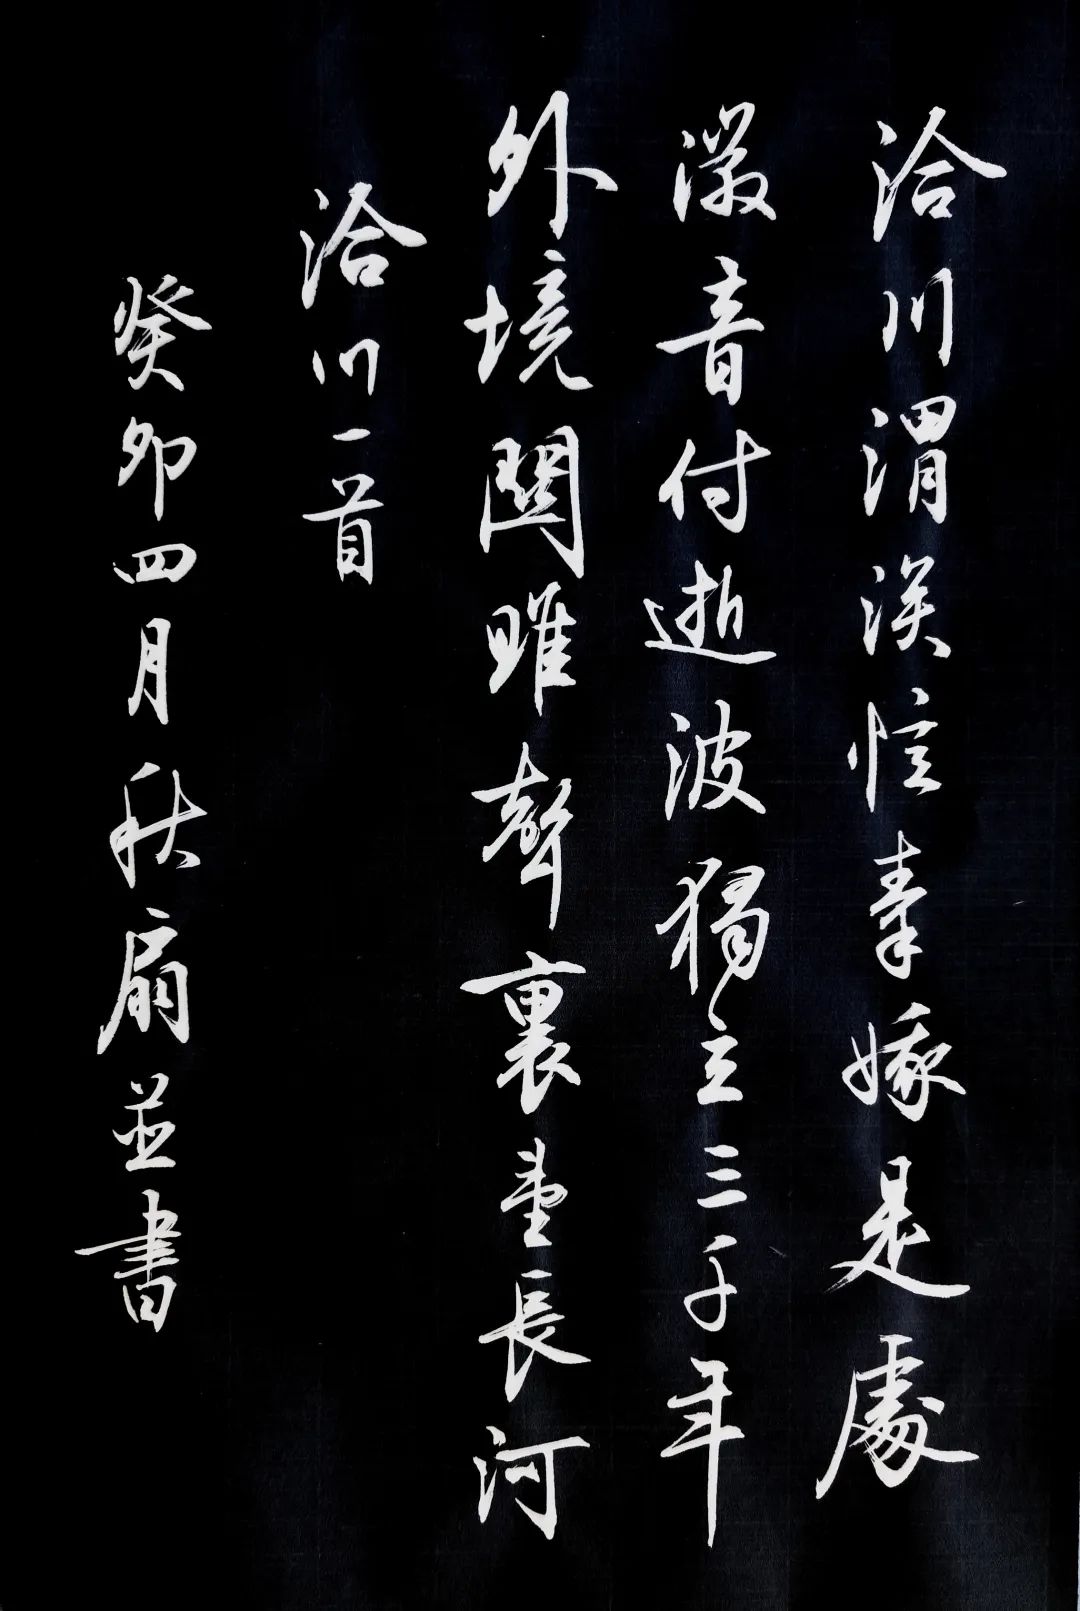 洽川渭涘憶秦娥是處
徽音付逝波獨立三千年
外境關雎聲裏望長河
洽川一首
癸卯四月秋扇並書